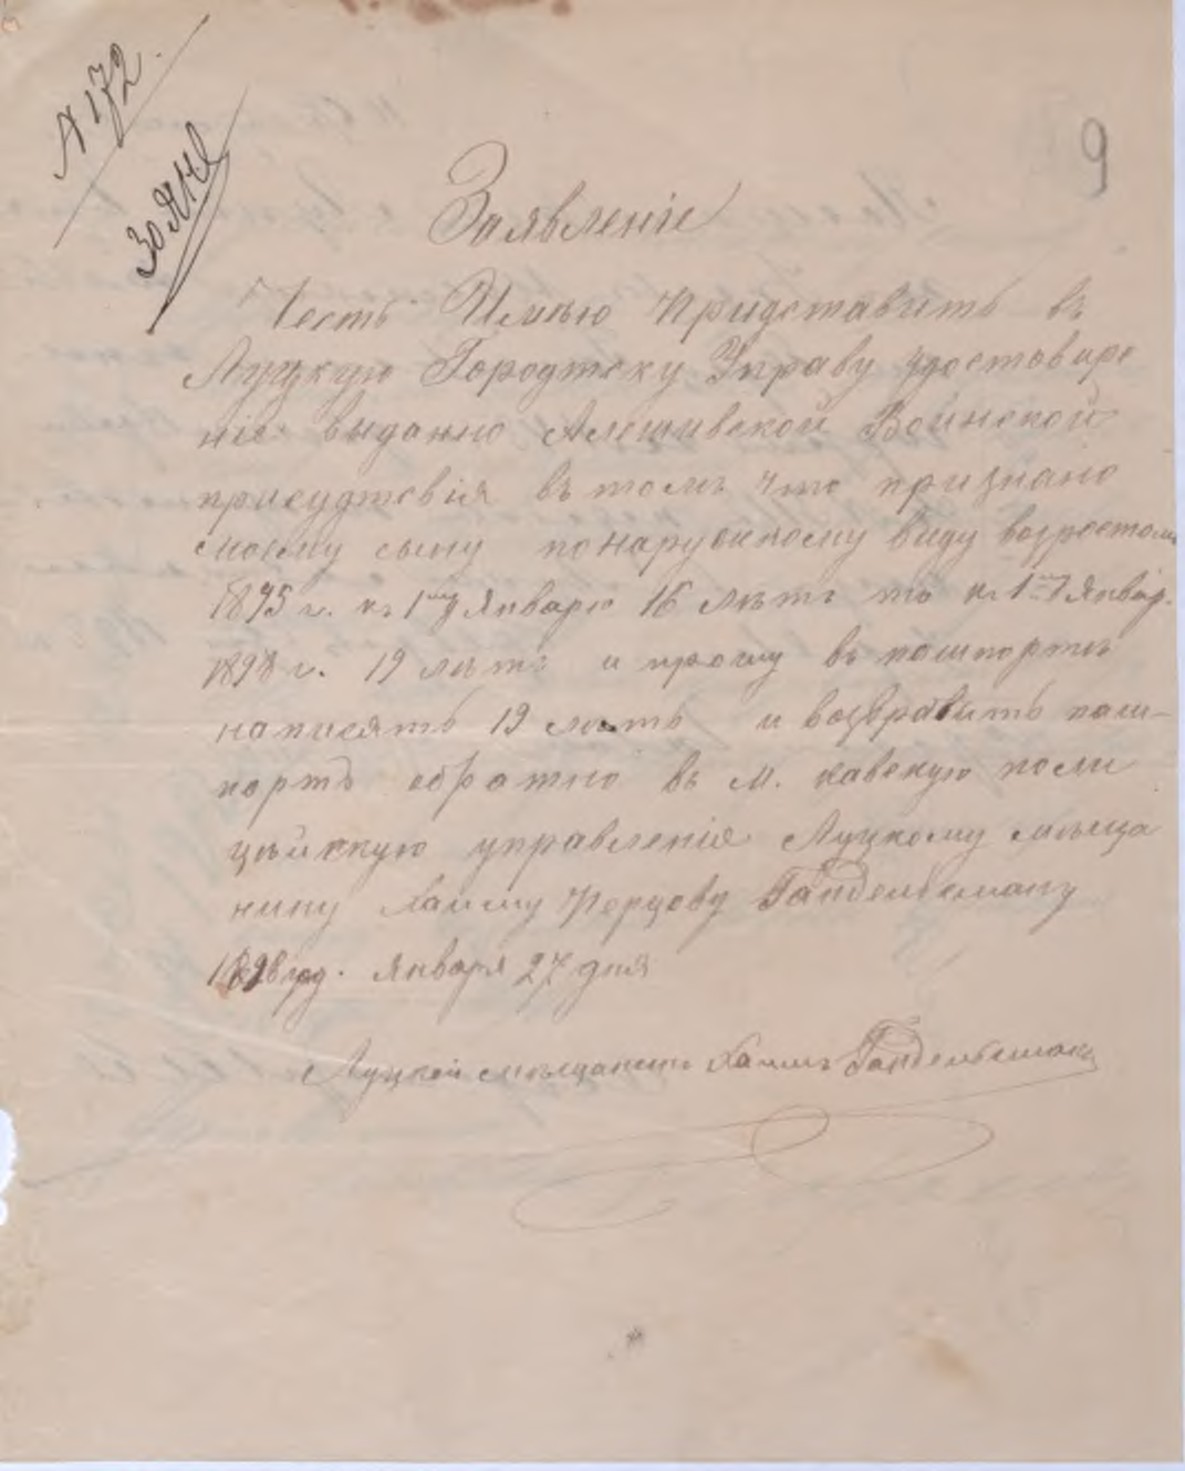 № 172.
30 Янв
9
Заявленіе
Честь Имѣю придставить въ
Луцкую Городтску Управу удостовире
ніе выданно Алешивской Воинской
присудтвія въ томъ что признано
моему сыну по наружному виду возростомъ
1895 г. къ 1му Январю 16 лѣтъ то къ 1му Январ.
1898 г. 19 лѣтъ и прошу въ пашпортъ
написять 19 лѣтъ и возвратить паш-
портъ обратно въ м. кавскую поли
цѣйскую управленія Луцкому мѣща
нину Хаиму Герцову Гандельсману
1898 год. Января 27 дня
Луцкій мѣщанинъ Хаимъ Гандельсманъ